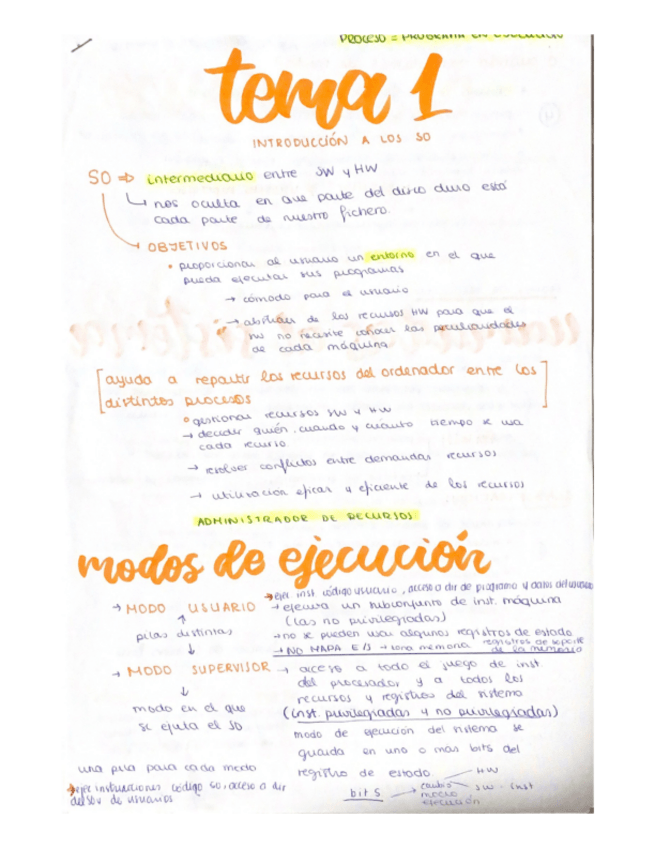 PROCESO = PROGRAMA EN EJECUCIÓN
tema 1
INTRODUCCIÓN A LOS SO
SO ⇒ intermediario entre SW y HW
↳ nos oculta en que parte del disco duro está
cada parte de nuestro fichero.
OBJETIVOS
• proporcionar al usuario un entorno en el que
pueda ejecutar sus programas
→ cómodo para el usuario
→ abstraer de los recursos HW para que el
no necesite conocer las peculiaridades
de cada máquina
[ayuda a repartir los recursos del ordenador entre los
distintos procesos]
• gestionar recursos SW y HW
→ decidir quién, cuando y cuánto tiempo se usa
cada recurso
→ resolver conflictos entre demandas recursos
→ utilización eficaz y eficiente de los recursos
ADMINISTRADOR DE RECURSOS
modos de ejecución
→ ejec inst código usuario, acceso a dir de programa y datos del usuario
→ MODO USUARIO → ejecuta un subconjunto de inst. máquina
(las no privilegiadas)
pilas distintas
→ no se pueden usar algunos registros de estado
→ NO MAPA E/S → zona memoria registros de soporte
de la memoria
→ MODO SUPERVISOR → acceso a todo el juego de inst.
del procesador y a todos los
recursos y registros del sistema
modo en el que
se ejuta el SO
(inst. privilegiadas y no privilegiadas)
modo de ejecución del sistema se
guarda en uno o mas bits del
registro de estado.
una pila para cada modo
→ ejec instrucciones código SO, acceso a dir
de usuarios
bits → cambio
modo
ejecución
HW
SW - inst